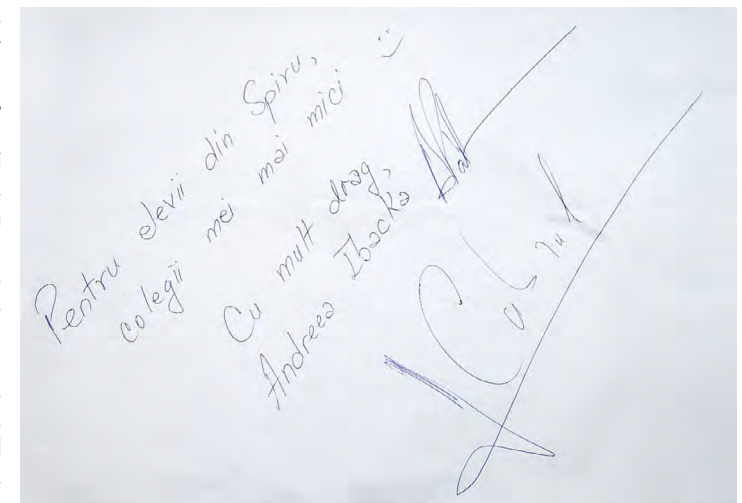 Pentru elevii din Spiru,
colegii mei mai mici :)
Cu mult drag,
Andreea Ibacka